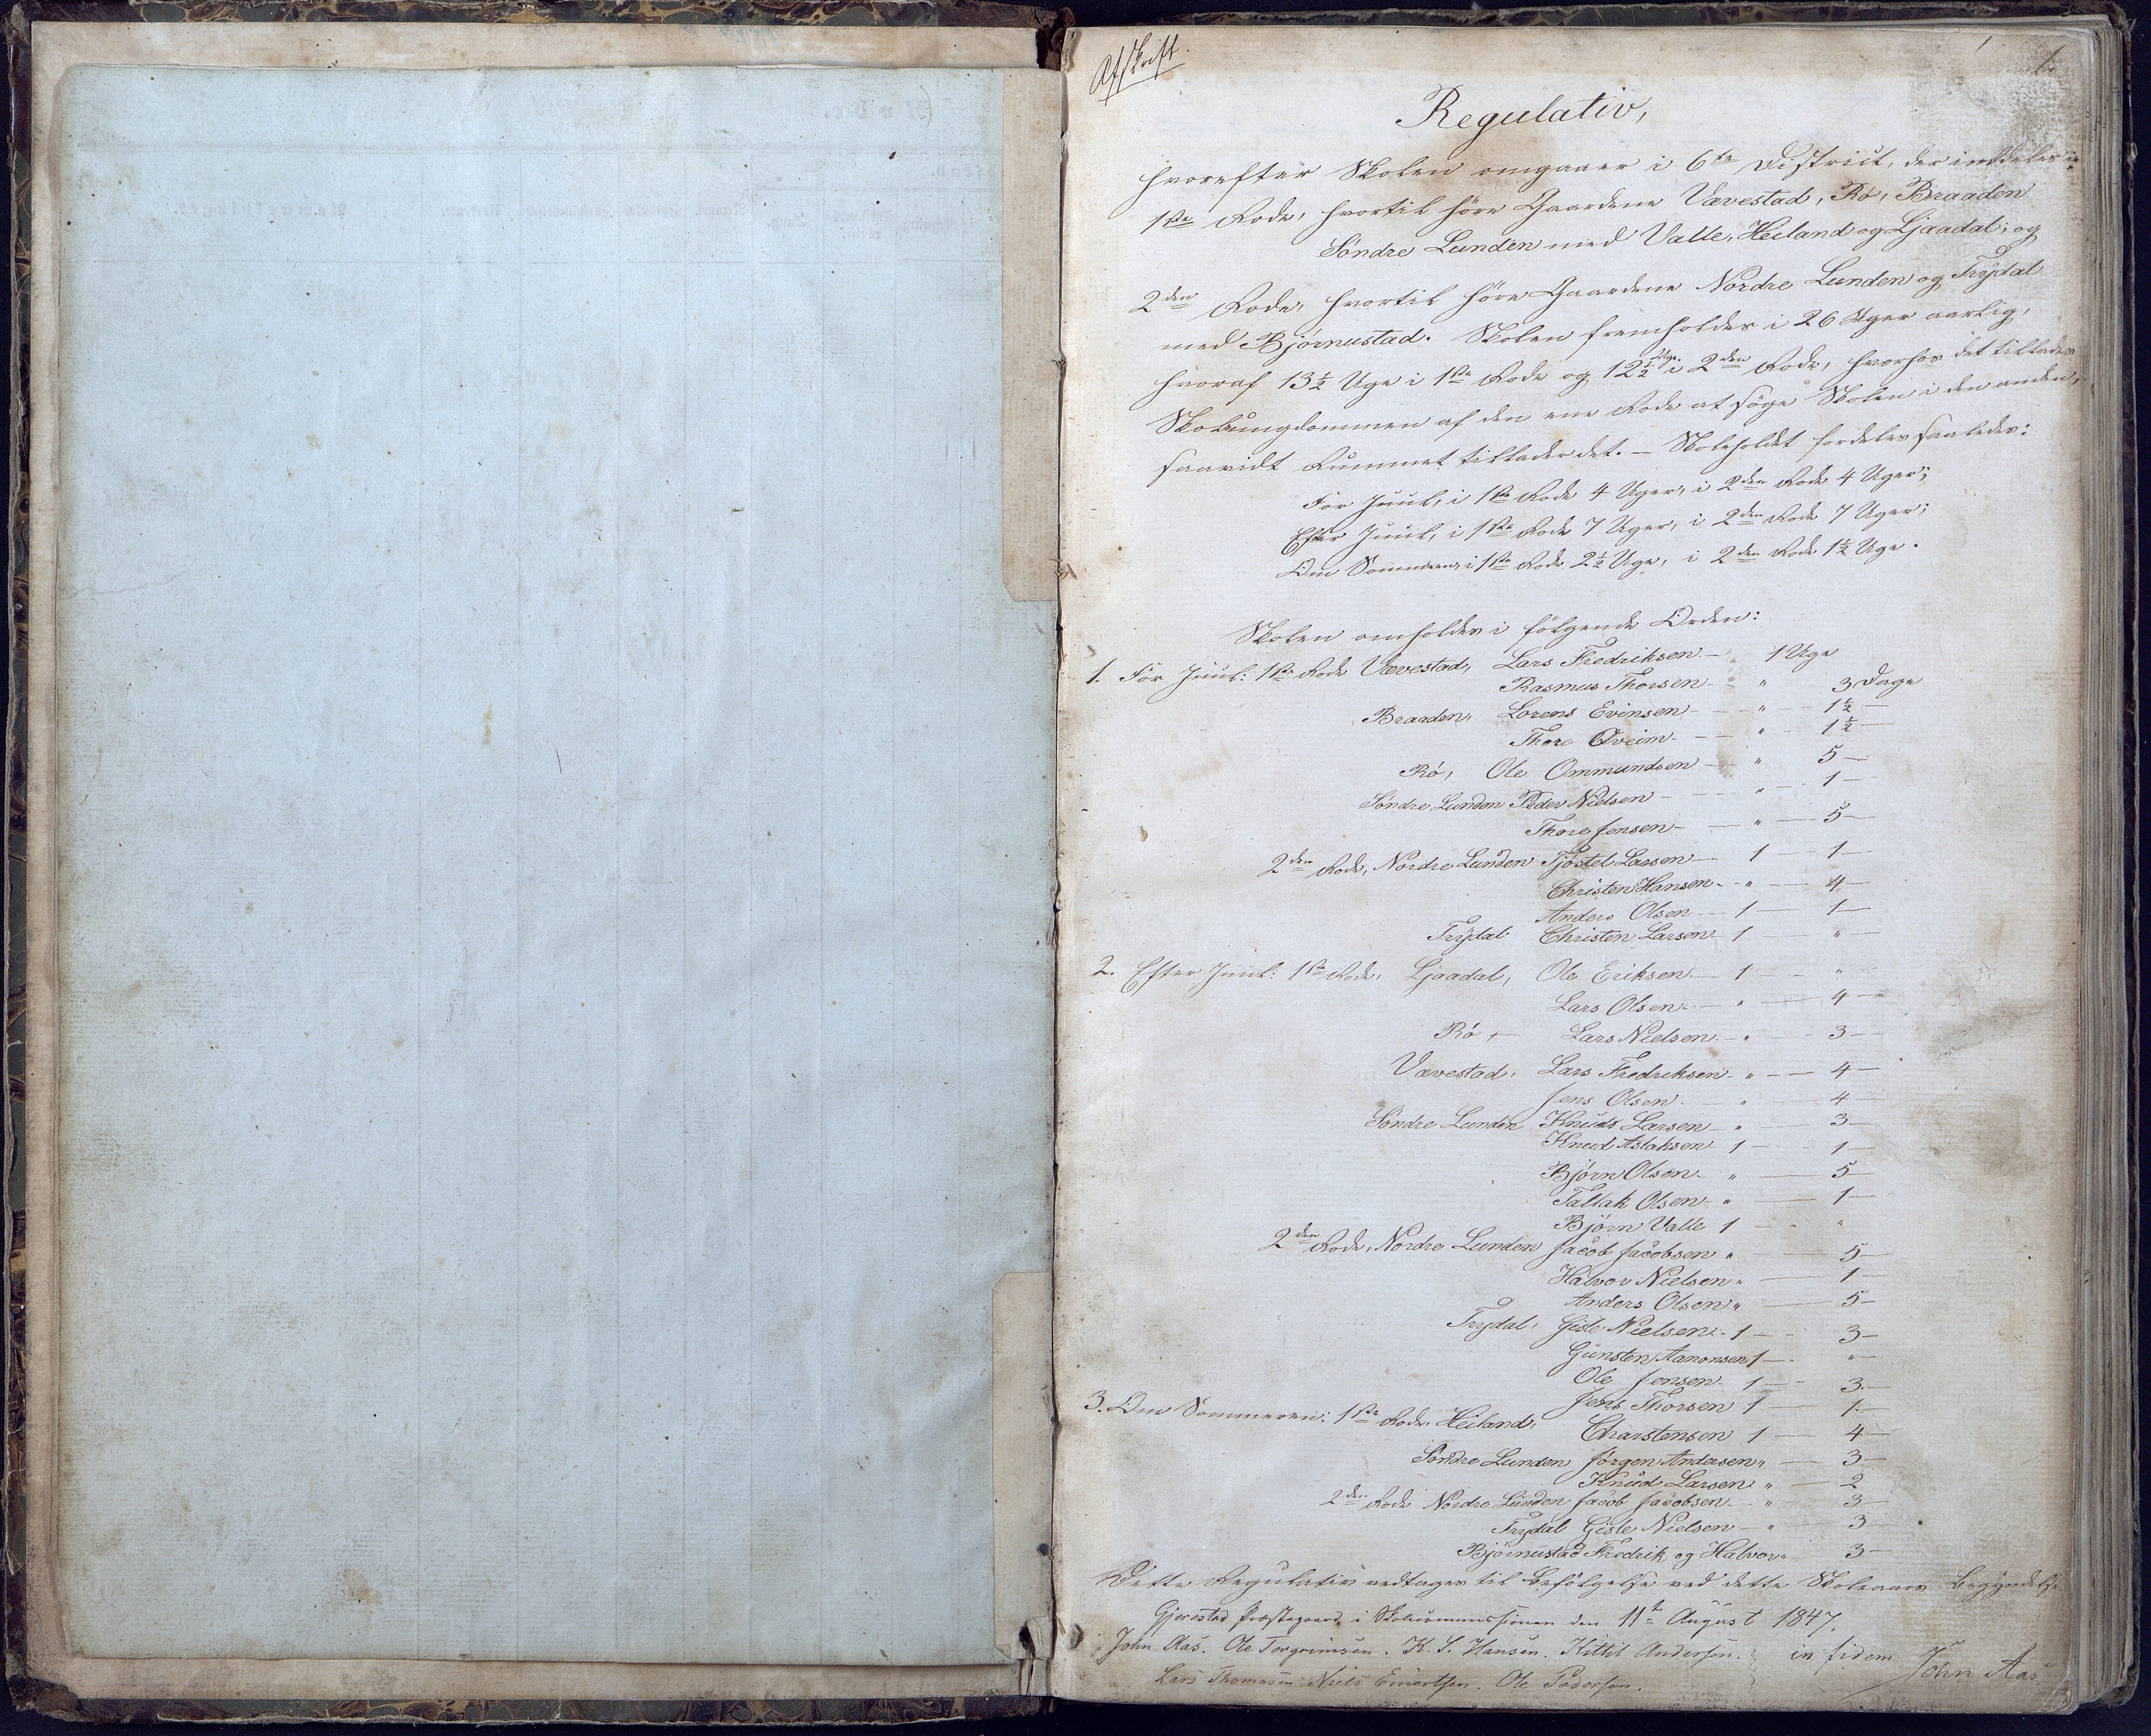 Afskrift.
1.
Regulativ,
hvorefter Skolen omgaaer i 6te District, der inddeles i
1ste Rode, hvortil høre Gaardene Vævestad, Rø, Braaden
Søndre Lunden med Valle, Heiland og Ljaadal; og
2den Rode, hvortil høre Gaardene Nordre Lunden og Trydal
med Bjørnustad. Skolen fremholdes i 26 Uger aarlig,
hvoraf 13½ Uge i 1ste Rode og 12½ Uge i 2den Rode, hvorhos det tillades
Skoleungdommen af den ene Rode at søge Skolen i den anden,
saavidt Rummet tillader det. — Skoleholdet fordeles saaledes:
Før Juul, i 1ste Rode 4 Uger, i 2den Rode 4 Uger;
Efter Juul, i 1ste Rode 7 Uger, i 2den Rode 7 Uger;
Om Sommeren, i 1ste Rode 2½ Uge, i 2den Rode 1½ Uge.
Skolen omholdes i følgende Orden:
1. Før Juul: 1ste Rode Vævestad, Lars Fredriksen — 1 Uge
Rasmus Thorsen — " 3 Dage
Braaden, Lorens Evinsen — " — 1½ —
Thore Qveim — " — 1½ —
Rø, Ole Ommundsen — " 5 —
Søndre Lunden Peder Nielsen — " — 1 —
Thore Jensen — " — 5 —
2den Rode, Nordre Lunden Tjøstel Larsen — 1 — 1 —
Christen Hansen — " — 4 —
Anders Olsen — 1 — 1 —
Trydal Christen Larsen 1 — " —
2. Efter Juul: 1ste Rode, Ljaadal, Ole Eriksen — 1 — "
Lars Olsen — " — 4 —
Rø, — Lars Nielsen — " — 3 —
Vævestad, Lars Fredriksen — " — 4 —
Jens Olsen — " — 4 —
Søndre Lunden Knud Larsen " — 3 —
Knud Aslaksen 1 — 1 —
Bjørn Olsen — " — 5 —
Tallak Olsen — " — 1 —
Bjørn Valle 1 — "
2den Rode, Nordre Lunden Jacob Jacobsen " — 5 —
Halvor Nielsen " — 1 —
Anders Olsen " — 5 —
Trydal, Gisle Nielsen — 1 — 3 —
Gunsten Aanonsen 1 — " —
Ole Jensen — 1 — 3 —
Jens Thorsen 1 — 1 —
3. Om Sommeren: 1ste Rode. Heiland, Charstensen 1 — 4 —
Søndre Lunden Jørgen Andersen " — 3 —
Knud Larsen " — 2
2den Rode Nordre Lunden Jacob Jacobsen — " 3 —
Trydal Gisle Nielsen — " 3 —
Bjørnustad Fredrik og Halvor " 3 —
Dette Regulativ vedtages til Befølgelse ved dette Skoleaars Begyndelse.
Gjerestad Præstegaard i Skolecommissionen den 11te August 1847.
John Aas. Ole Torgrimsen. K. S. Hansen. Kittil Andersen. in fidem
Lars Thomasen. Niels Einertsen. Ole Pedersen. John Aas